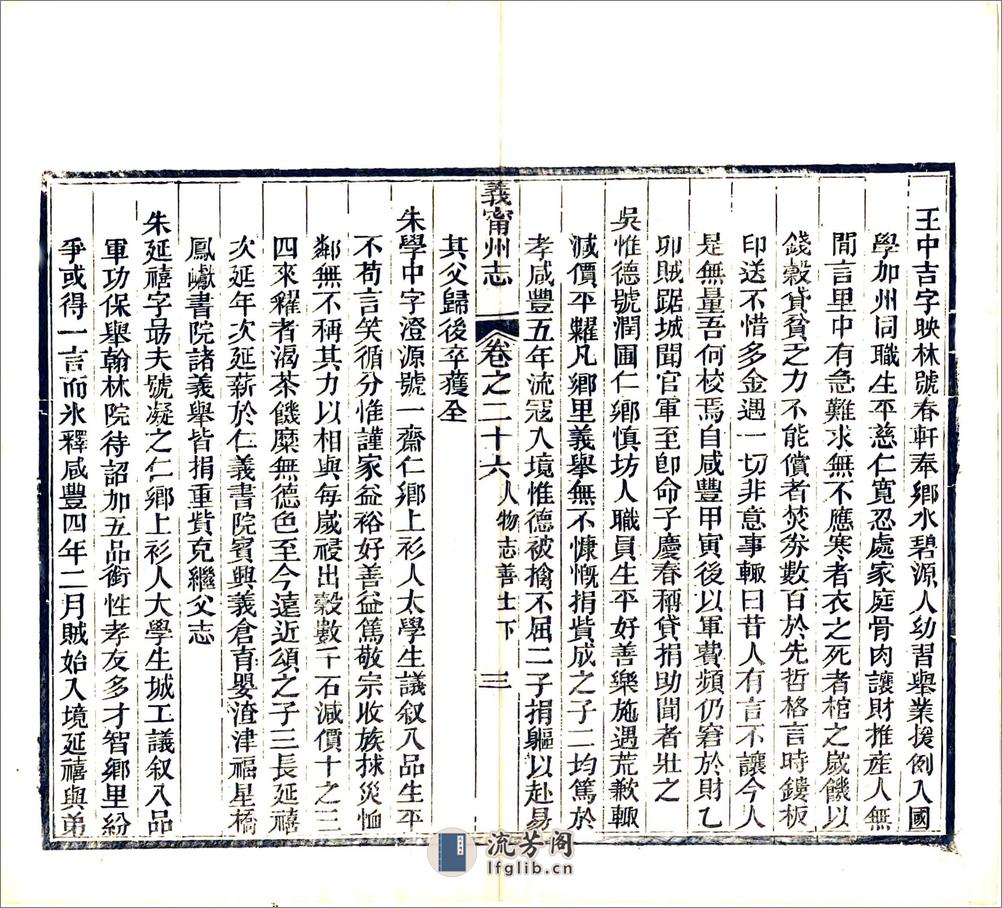 王中吉字映林號春軒奉鄉水碧源人幼習舉業援例入國
學加州同職生平慈仁寬忍處家庭骨肉讓財推産人無
間言里中有急難求無不應寒者衣之死者棺之歲饑以
錢穀貸貧乏力不能償者焚劵數百於先哲格言時鐫板
印送不惜多金遇一切非意事輒曰昔人有言不讓今人
是無量吾何校焉自咸豐甲寅後以軍費頻仍窘於財乙
卯賊踞城聞官軍至卽命子慶春稱貸捐助聞者壯之
吳惟德號潤圃仁鄉慎坊人職員生平好善樂施遇荒歉輒
減價平糶凡鄉里義舉無不慷慨捐貲成之子二均篤於
孝咸豐五年流冦入境惟德被擒不屈二子捐軀以赴易
義甯州志
卷之二十六
人物志善士下
三
其父歸後卒獲全
朱學中字澄源號一齋仁鄉上衫人太學生議叙八品生平
不苟言笑循分惟謹家益裕好善益篤敬宗收族捄災恤
鄰無不稱其力以相與每嵗祲出穀數千石減價十之三
四來糴者渴茶饑糜無德色至今遠近頌之子三長延禧
次延年次延薪於仁義書院賓興義倉育嬰渣津福星橋
鳳巘書院諸義舉皆捐重貲克繼父志
朱延禧字勗夫號凝之仁鄉上衫人大學生城工議叙八品
軍功保舉翰林院待詔加五品銜性孝友多才智鄉里紛
爭或得一言而氷釋咸豐四年二月賊始入境延禧與弟
流芳阁
lfglib.cn